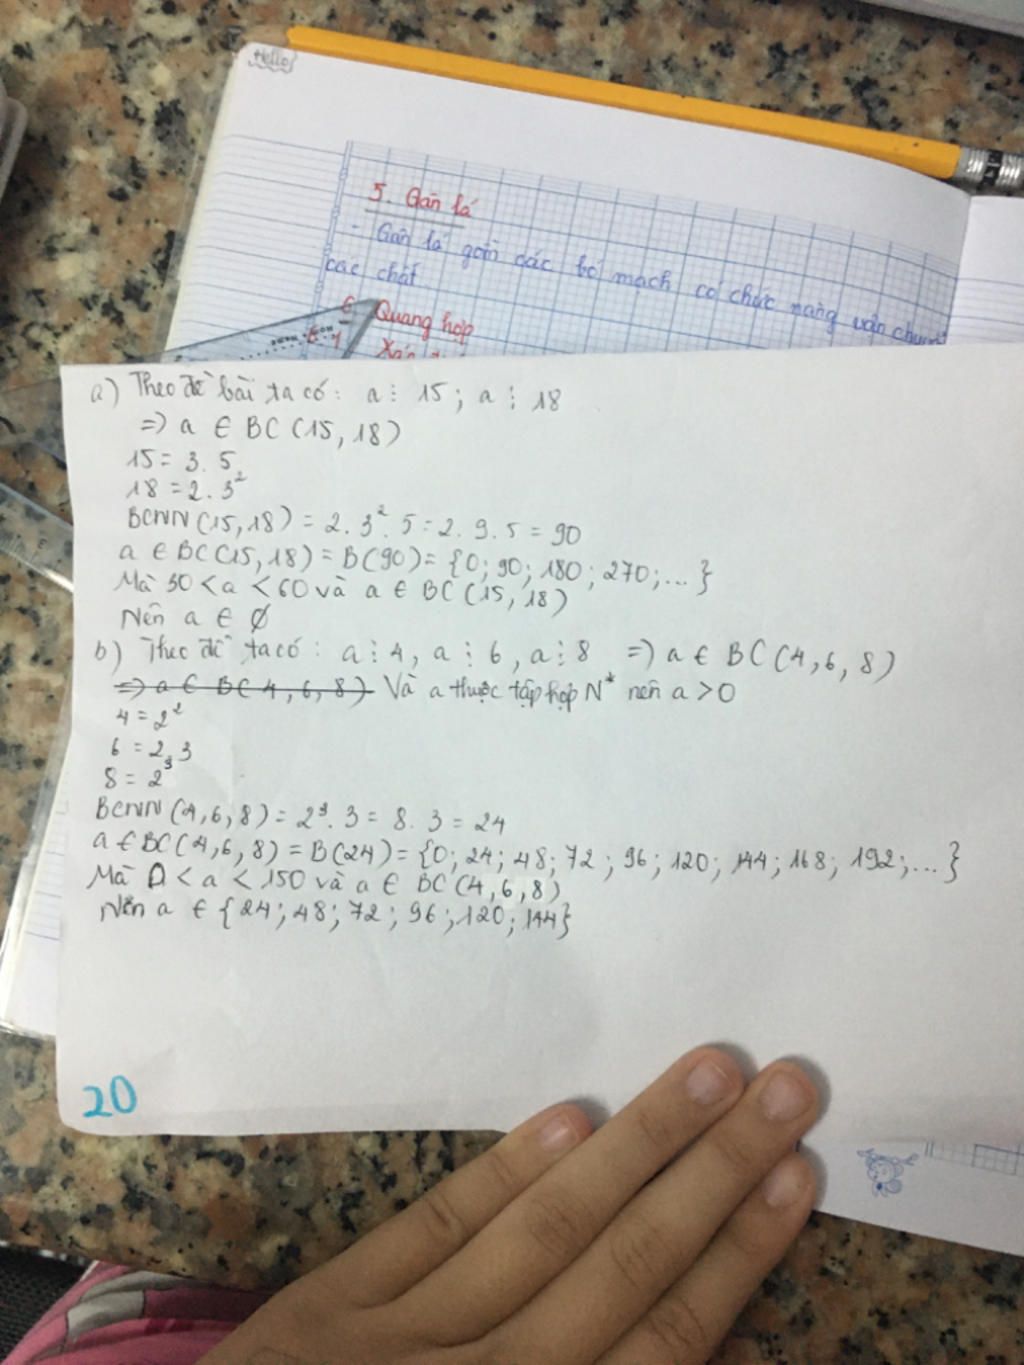 Hello
5. Gân lá
- Gân lá gồm các bó mạch có chức năng vận chuyển
các chất
Quang hợp
a) Theo đề bài ta có: a ⋮ 15; a ⋮ 18
=> a ∈ BC (15, 18)
15 = 3. 5
18 = 2. 3²
BCNN (15, 18) = 2. 3². 5 = 2. 9. 5 = 90
a ∈ BC (15, 18) = B(90) = {0; 90; 180; 270; ...}
Mà 30 < a < 60 và a ∈ BC (15, 18)
Nên a ∈ ∅
b) Theo đề ta có: a ⋮ 4, a ⋮ 6, a ⋮ 8 => a ∈ BC (4, 6, 8)
=> a ∈ BC 4, 6, 8) Và a thuộc tập hợp N* nên a > 0
4 = 2²
6 = 2. 3
8 = 2³
BCNN (4, 6, 8) = 2³. 3 = 8. 3 = 24
a ∈ BC (4, 6, 8) = B(24) = {0; 24; 48; 72; 96; 120; 144; 168; 192; ...}
Mà 0 < a < 150 và a ∈ BC (4, 6, 8)
Nên a ∈ {24; 48; 72; 96; 120; 144}
20